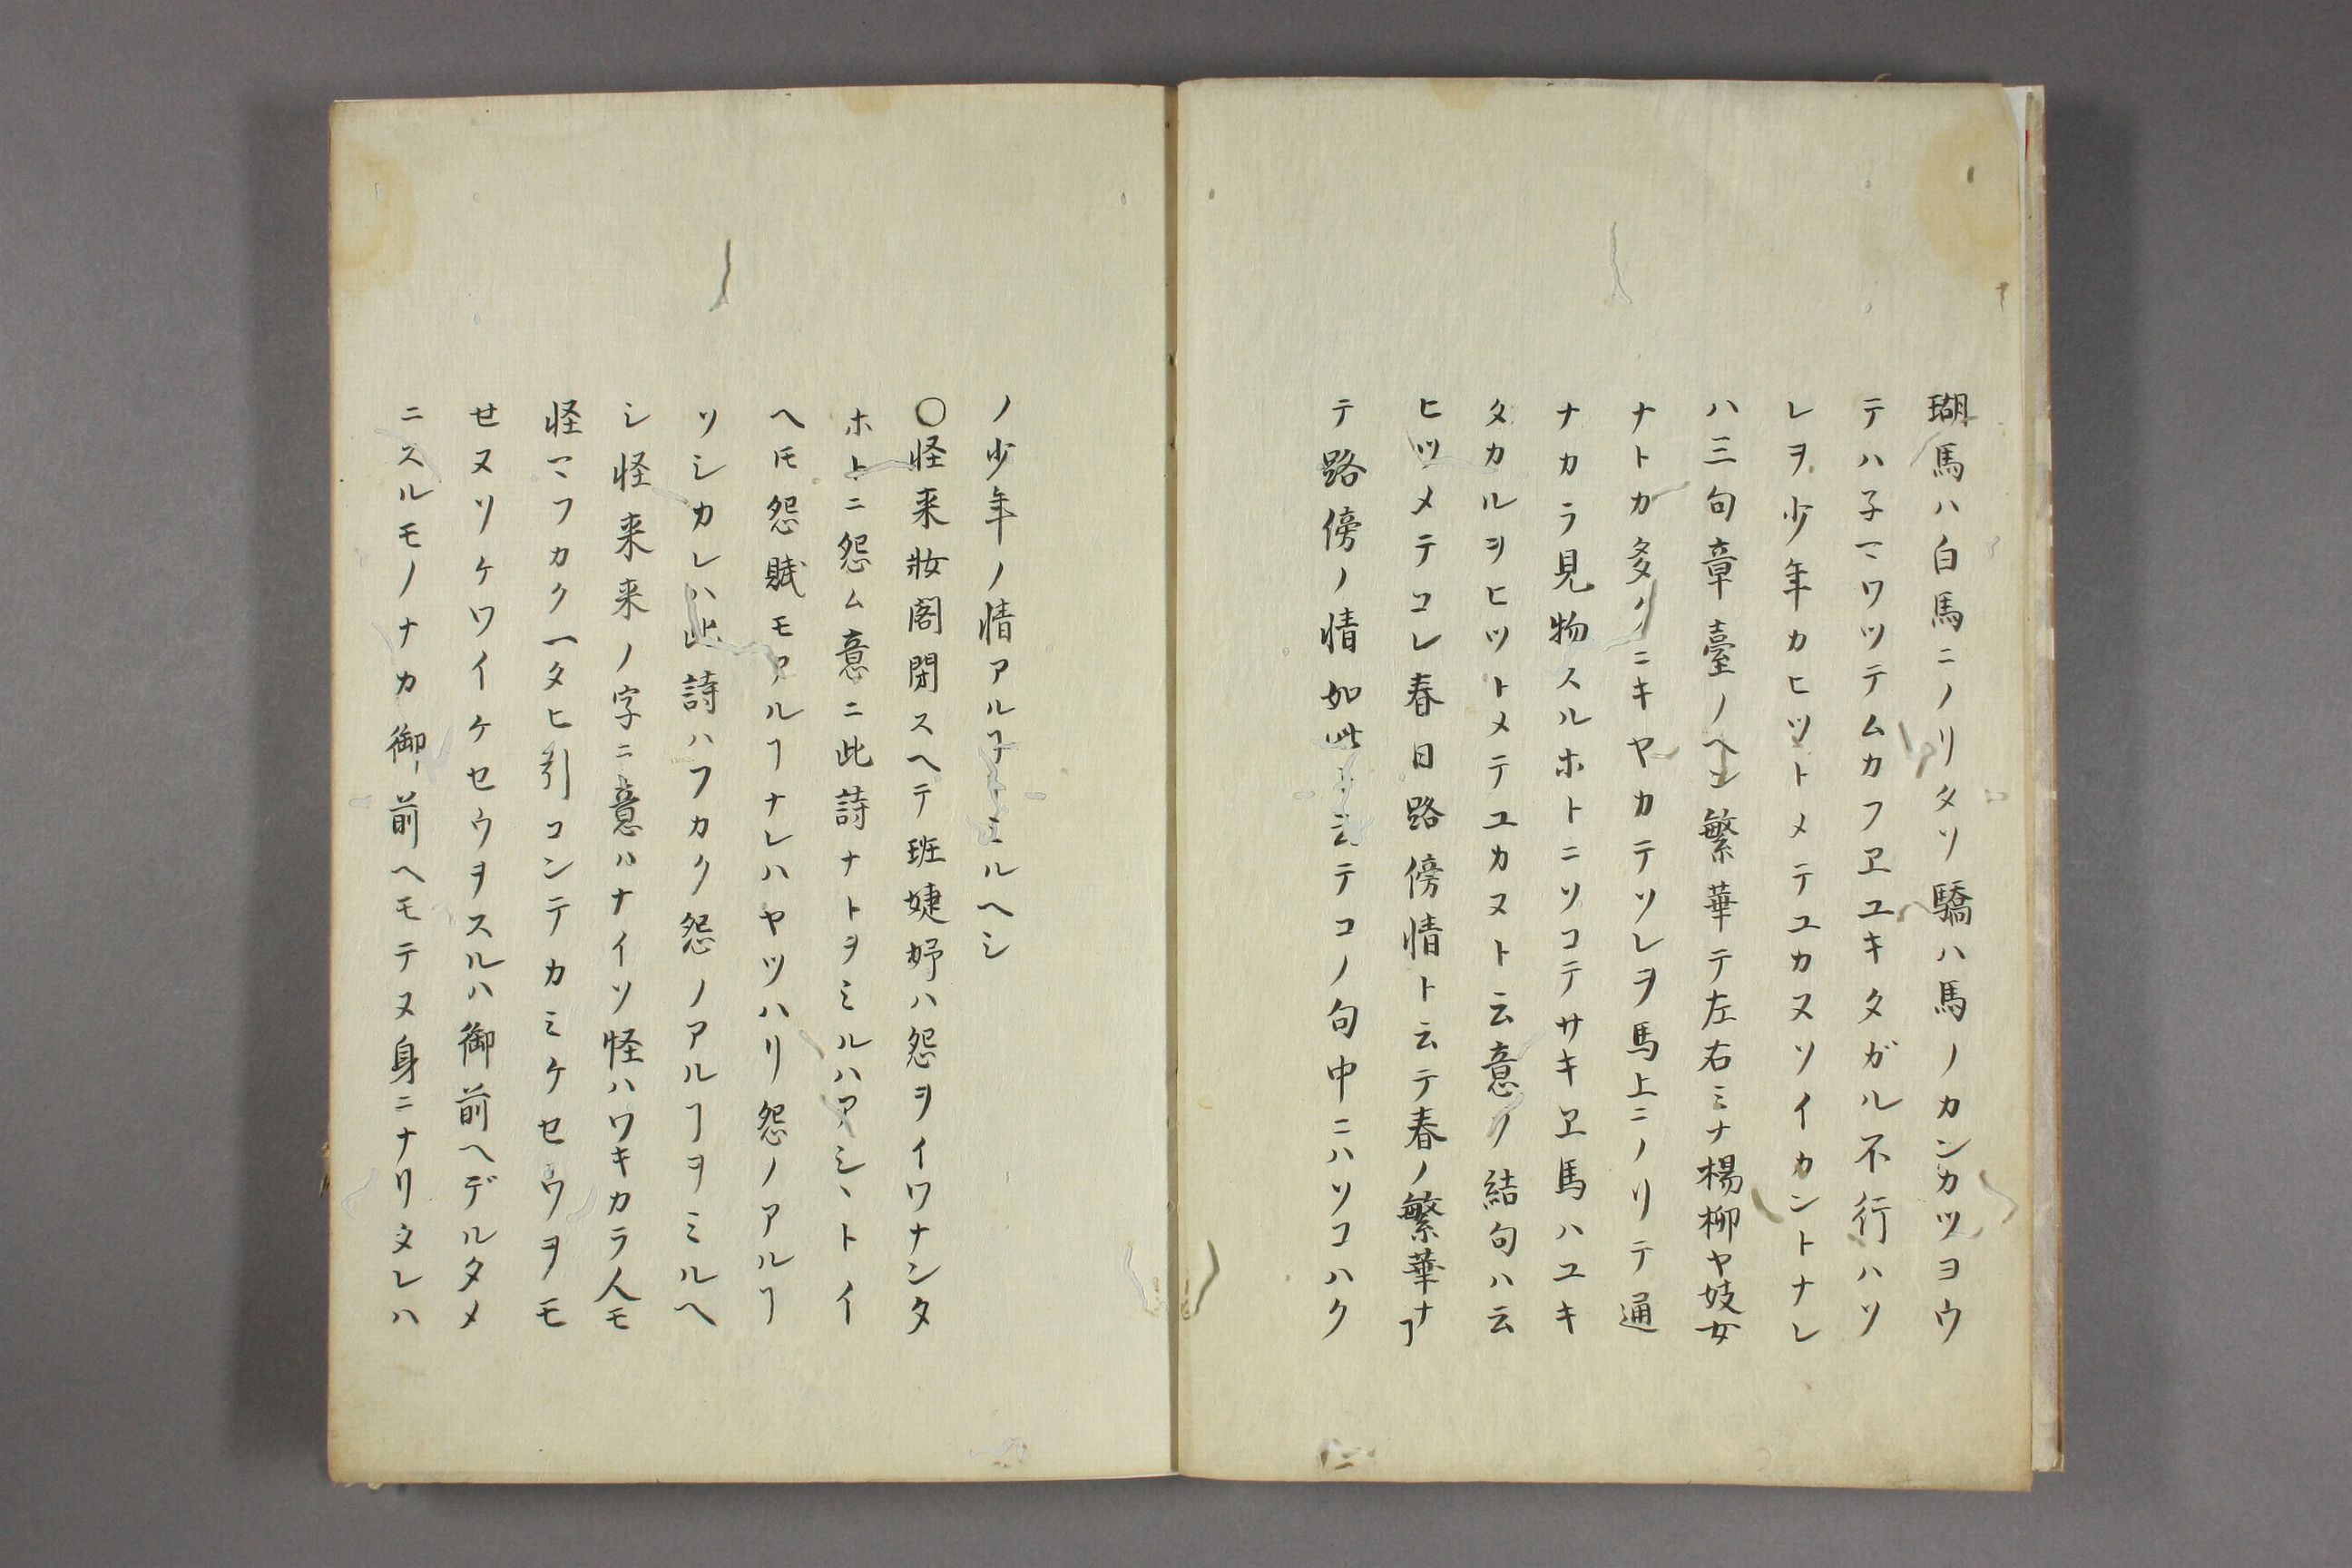 瑚馬ハ白馬ニノリタソ驕ハ馬ノカンカツヨウ
テハ子マワツテムカフヱユキタガル不行ハソ
レヲ少年カヒツトメテユカヌソイカントナレ
ハ三句章臺ノヘン繁華テ左右ミナ楊柳ヤ妓女
ナトカ多クニキヤカテソレヲ馬上ニノリテ通
ナカラ見物スルホトニソコテサキヱ馬ハユキ
タカルヲヒツトメテユカヌト云意ソ結句ハ云
ヒツメテコレ春日路傍情ト云テ春ノ繁華ナヿ
テ路傍ノ情如此ト云テコノ句中ニハソコハク
ノ少年ノ情アルヿヲミルヘシ
〇怪来妝閣閉スヘテ班婕妤ハ怨ヲイワナンタ
ホトニ怨ム意ニ此詩ナトヲミルハアシヽトイ
ヘ𪜈怨賦モアルヿナレハヤツハリ怨ノアルヿ
ソシカレハ此詩ハフカク怨ノアルヿヲミルヘ
シ怪来来ノ字ニ意ハナイソ怪ハワキカラ人モ
怪マフカク一タヒ引コンテカミケセウヲモ
せヌソケワイケセウヲスルハ御前ヘデルタメ
ニスルモノナカ御前ヘモテヌ身ニナリタレハ